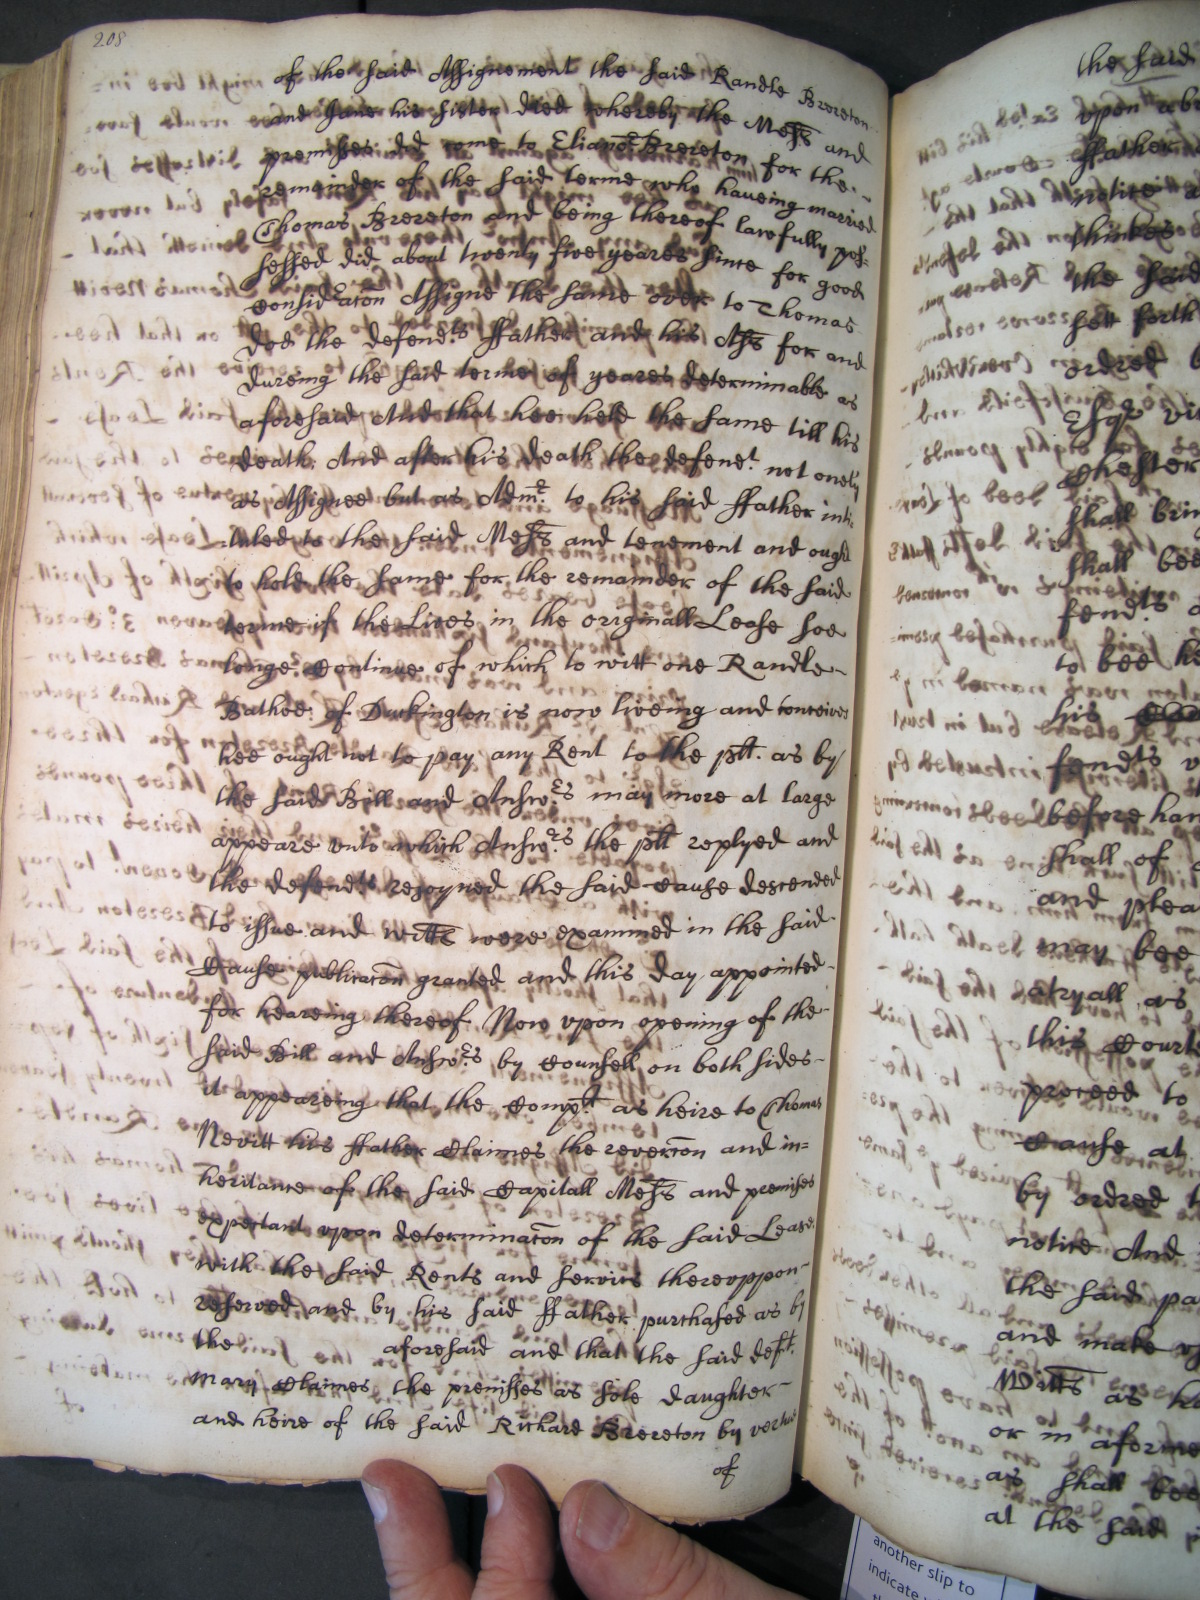 208
of the said Assignement the said Randle Brereton
and Jane his sister died whereby the Mess. and
premisses did come to Elianor Brereton for the
remeinder of the said terme who haueing married
Thomas Brereton and being thereof lawfully pos=
sessed did about twenty five yeares since for good
considracon Assigne the same over to Thomas
Dod the defendts ffather and his Ass for and
dureing the said terme of yeares determinable as
aforesaid And that hee held the same till his
death. And after his death the defendt. not onely
as Assignee but as Admr. to his said ffather inti=
tuled to the said Mess and tenement and ought
to hold the same for the remainder of the said
terme if the Lives in the originall Lease soe
longe Continue of which to witt one Randle
Bathoe of Duckington is now liveing and conceives
hee ought not to pay any Rent to the plt. as by
the said Bill and Answrs may more at large
appeare vnto which Answrs the plt replyed and
the defendts rejoyned the said Cause descended
to issue and witts were examined in the said
Cause publicacon granted and this day appointed
for heareing thereof Now vpon opening of the
said Bill and Answrs by Counsell on both sides
it appeareing that the Complt as heire to Thomas
Nevitt his ffather Claimes the revercon and in=
heritance of the said Capitall Mess and premises
expectant vpon determinacon of the said Lease.
with the said Rents and services therevppon
reserved and by his said ffather purchased as by
the aforesaid and that the said deft.
Mary Claimes the premisses as sole daughter
and heire of the said Richard Brereton by vertue
of
the said
vpon
ffather
notice
thinkes
the said
sett forth
ordred
Esqr
Chester
shall
shall bee
fendts
to bee
his
fendts
before
shall of
and
may bee
tryall as
this Courte
proceed to
Cause at
by ordred
notice And
the said
and make
Witts as
or in
as shall bee
at the said
another slip to
indicate